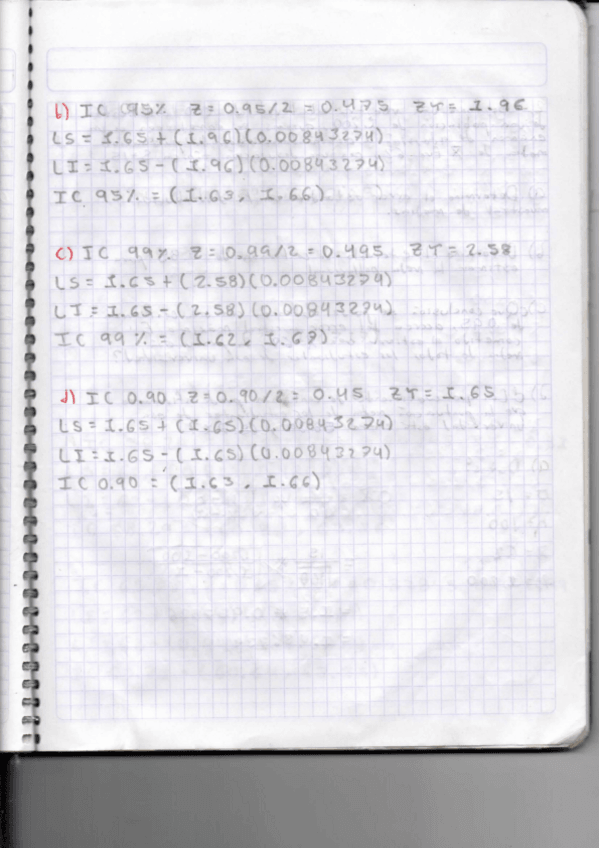 b) IC 95% Z = 0.95/2 = 0.475 ZT = 1.96
LS = 1.65 + (1.96)(0.00843274)
LI = 1.65 - (1.96)(0.00843274)
IC 95% = (1.63, 1.66)
c) IC 99% Z = 0.99/2 = 0.495 ZT = 2.58
LS = 1.65 + (2.58)(0.00843274)
LI = 1.65 - (2.58)(0.00843274)
IC 99% = (1.62, 1.67)
d) IC 0.90 Z = 0.90/2 = 0.45 ZT = 1.65
LS = 1.65 + (1.65)(0.00843274)
LI = 1.65 - (1.65)(0.00843274)
IC 0.90 = (1.63, 1.66)